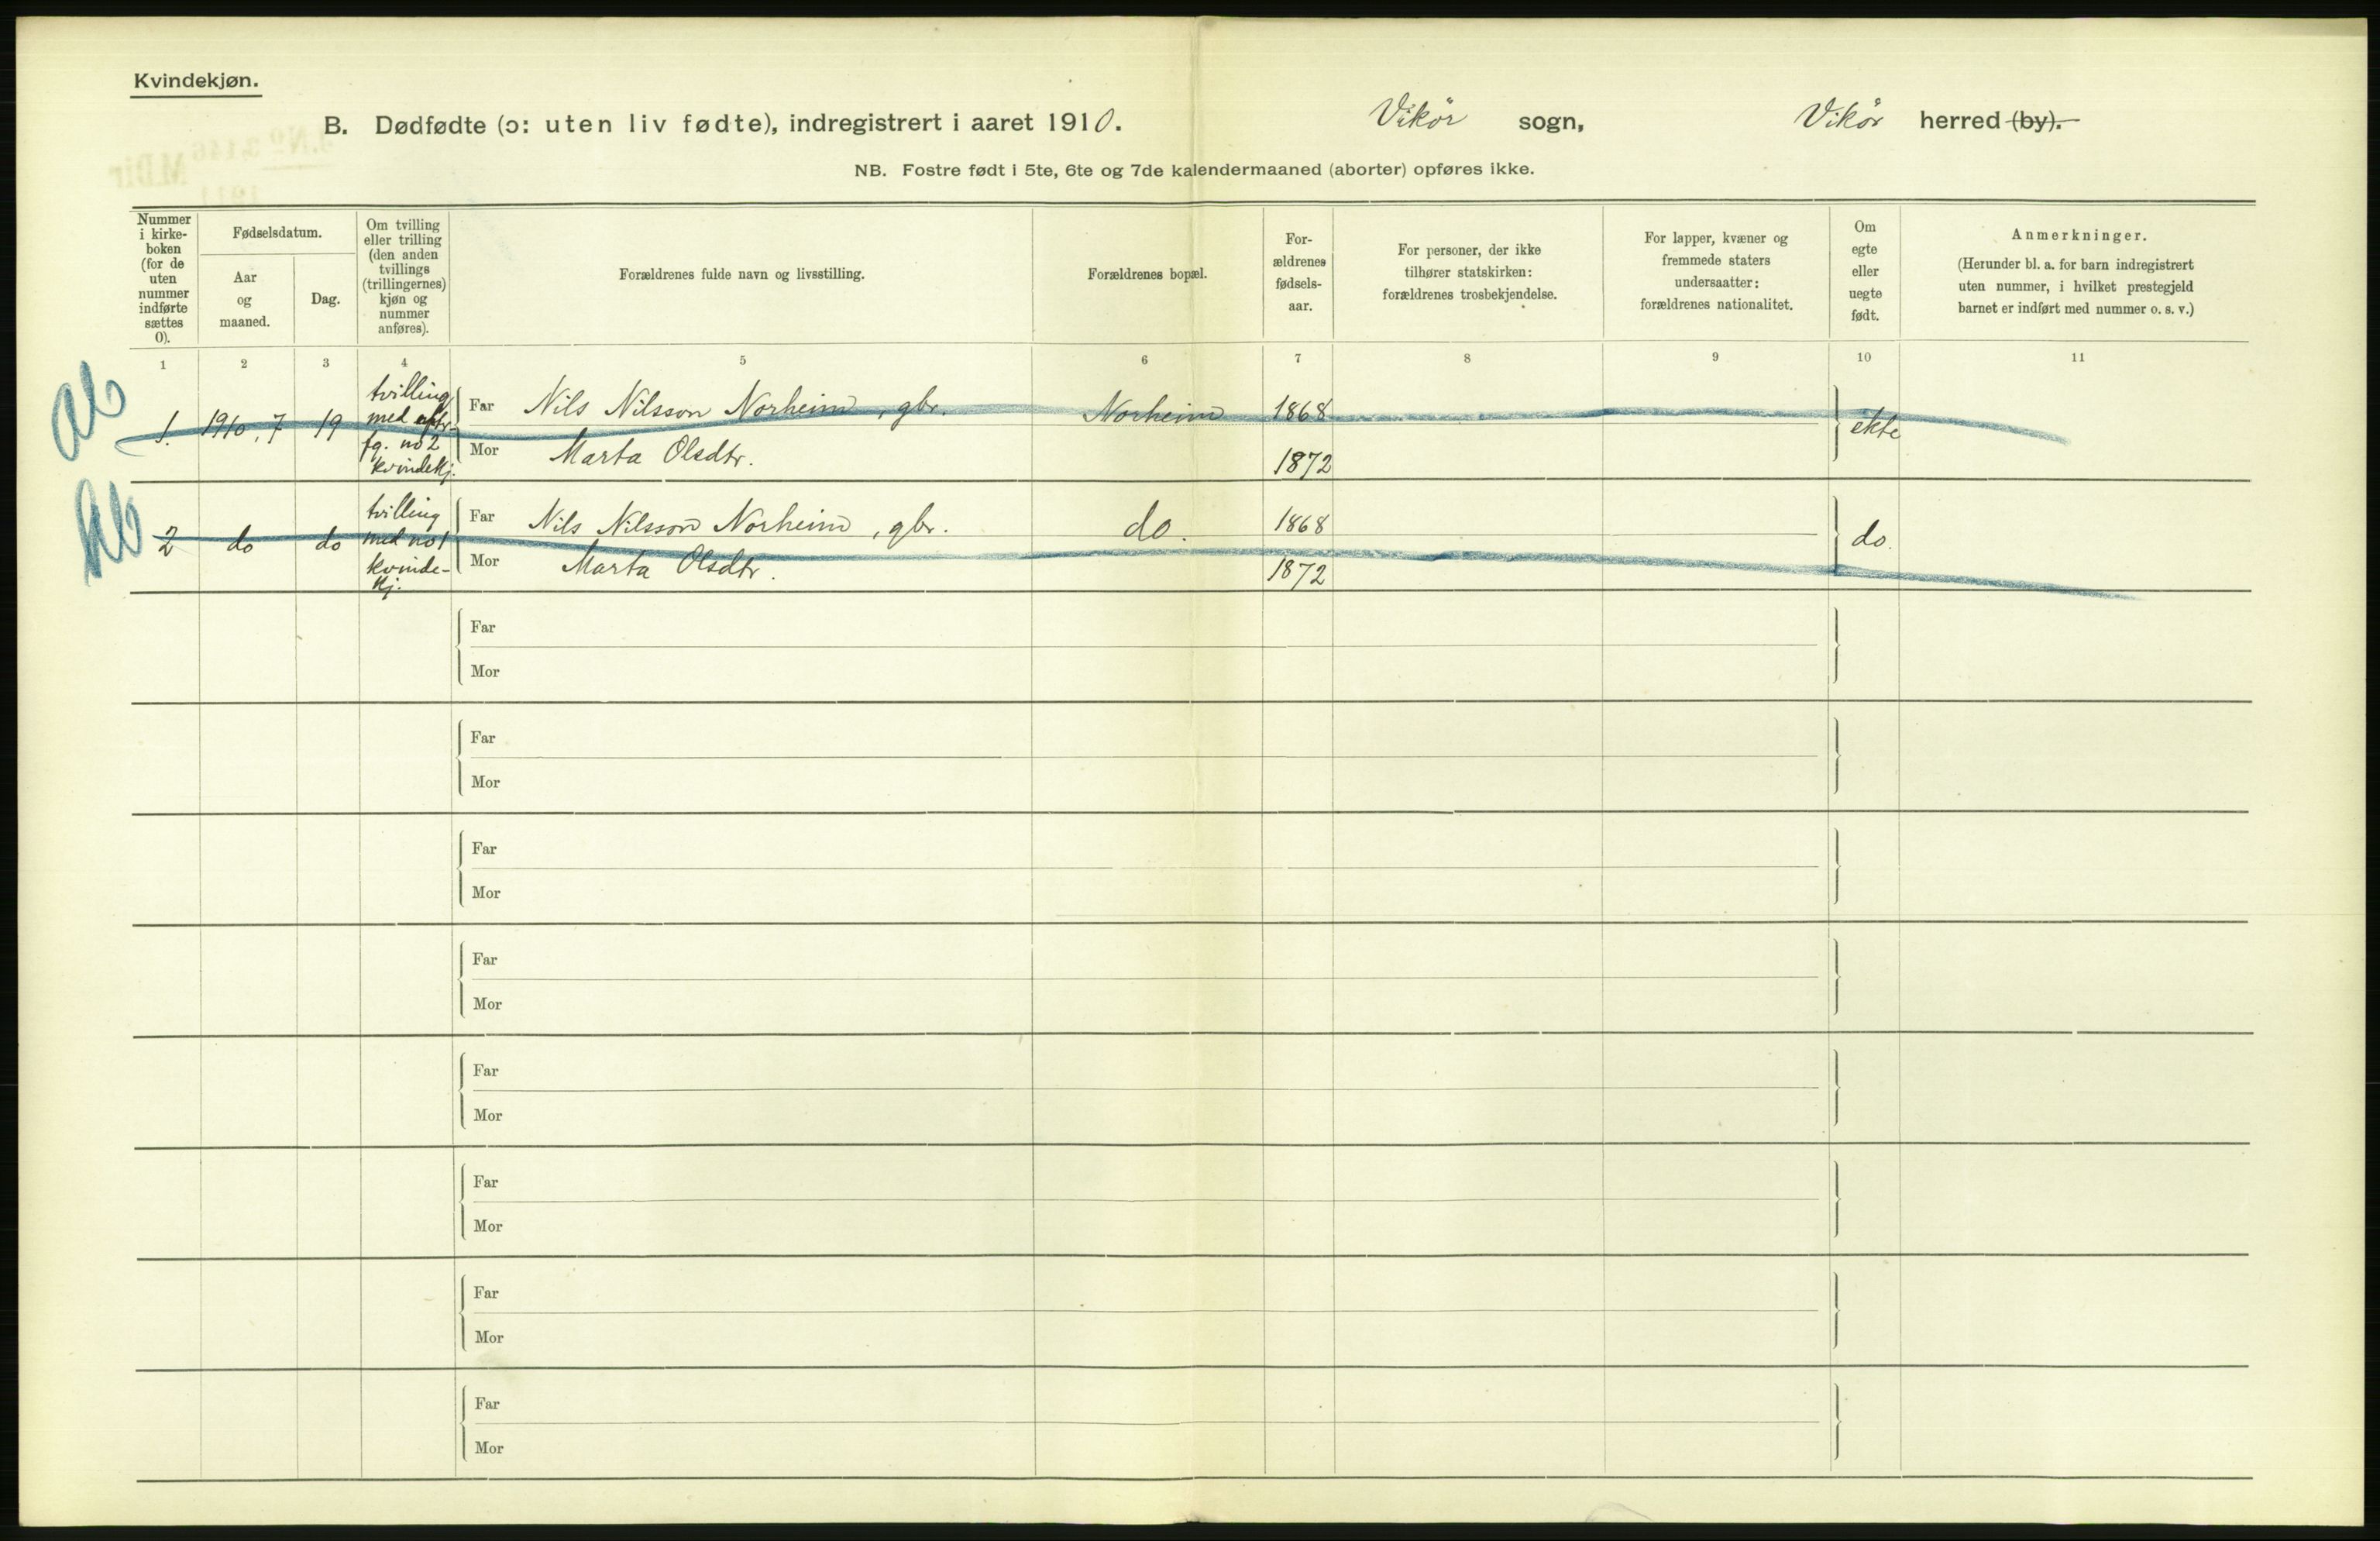 Kvindekjøn.
B. Dødfødte (ɔ: uten liv fødte), indregistrert i aaret 1910. Vikör sogn, Vikör herred (by).
NB. Fostre født i 5te, 6te og 7de kalendermaaned (aborter) opføres ikke.
Nummer i kirke-boken (for de uten nummer indførte sættes 0).
Fødselsdatum.
Aar og maaned.
Dag.
Om tvilling eller trilling (den anden tvillings (trillingernes) kjøn og nummer anføres).
Forældrenes fulde navn og livsstilling.
Forældrenes bopæl.
For-ældrenes fødsels-aar.
For personer, der ikke tilhører statskirken: forældrenes trosbekjendelse.
For lapper, kvæner og fremmede staters undersaatter: forældrenes nationalitet.
Om egte eller uegte født.
Anmerkninger.
(Herunder bl. a. for barn indregistrert uten nummer, i hvilket prestegjeld barnet er indført med nummer o. s. v.)
1 2 3 4 5 6 7 8 9 10 11
ab
1. 1910, 7 19 tvilling med fg. no 2 kvindekj. Far Nils Nilsson Norheim, gbr. Norheim 1868 ekte
Mor Marta Olsdtr. 1872
2 do do tvilling med no 1 kvinde-kj. Far Nils Nilsson Norheim, gbr. do. 1868 do.
Mor Marta Olsdtr. 1872
Far
Mor
Far
Mor
Far
Mor
Far
Mor
Far
Mor
Far
Mor
Far
Mor
Far
Mor